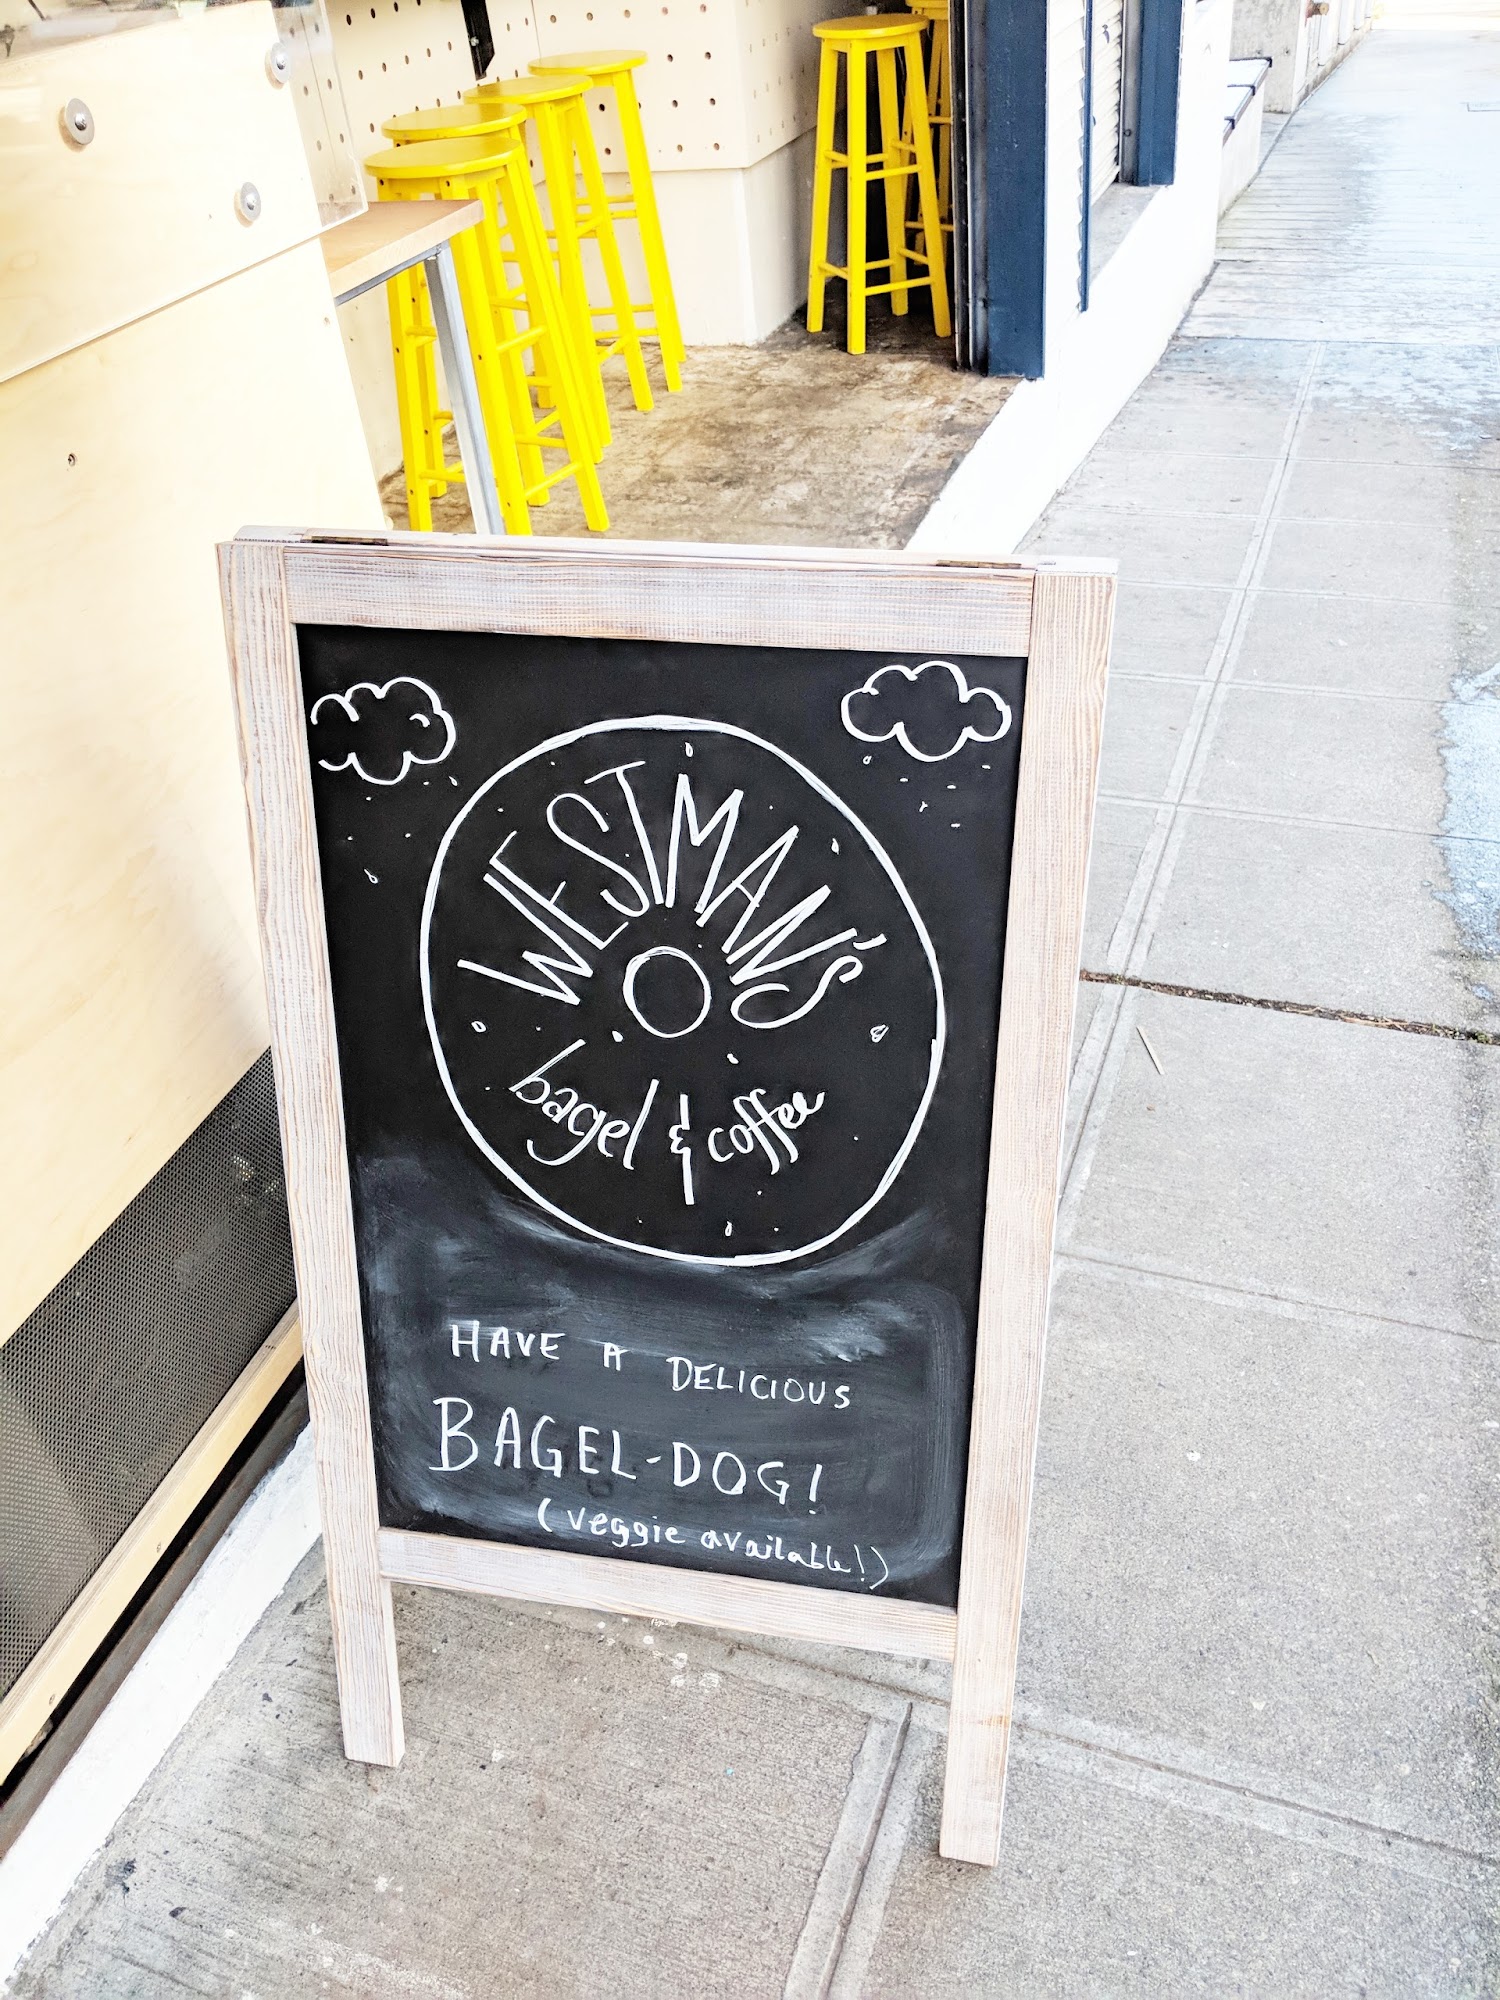 WESTMAN'S
bagel & coffee
HAVE A DELICIOUS
BAGEL-DOG!
(veggie available!)